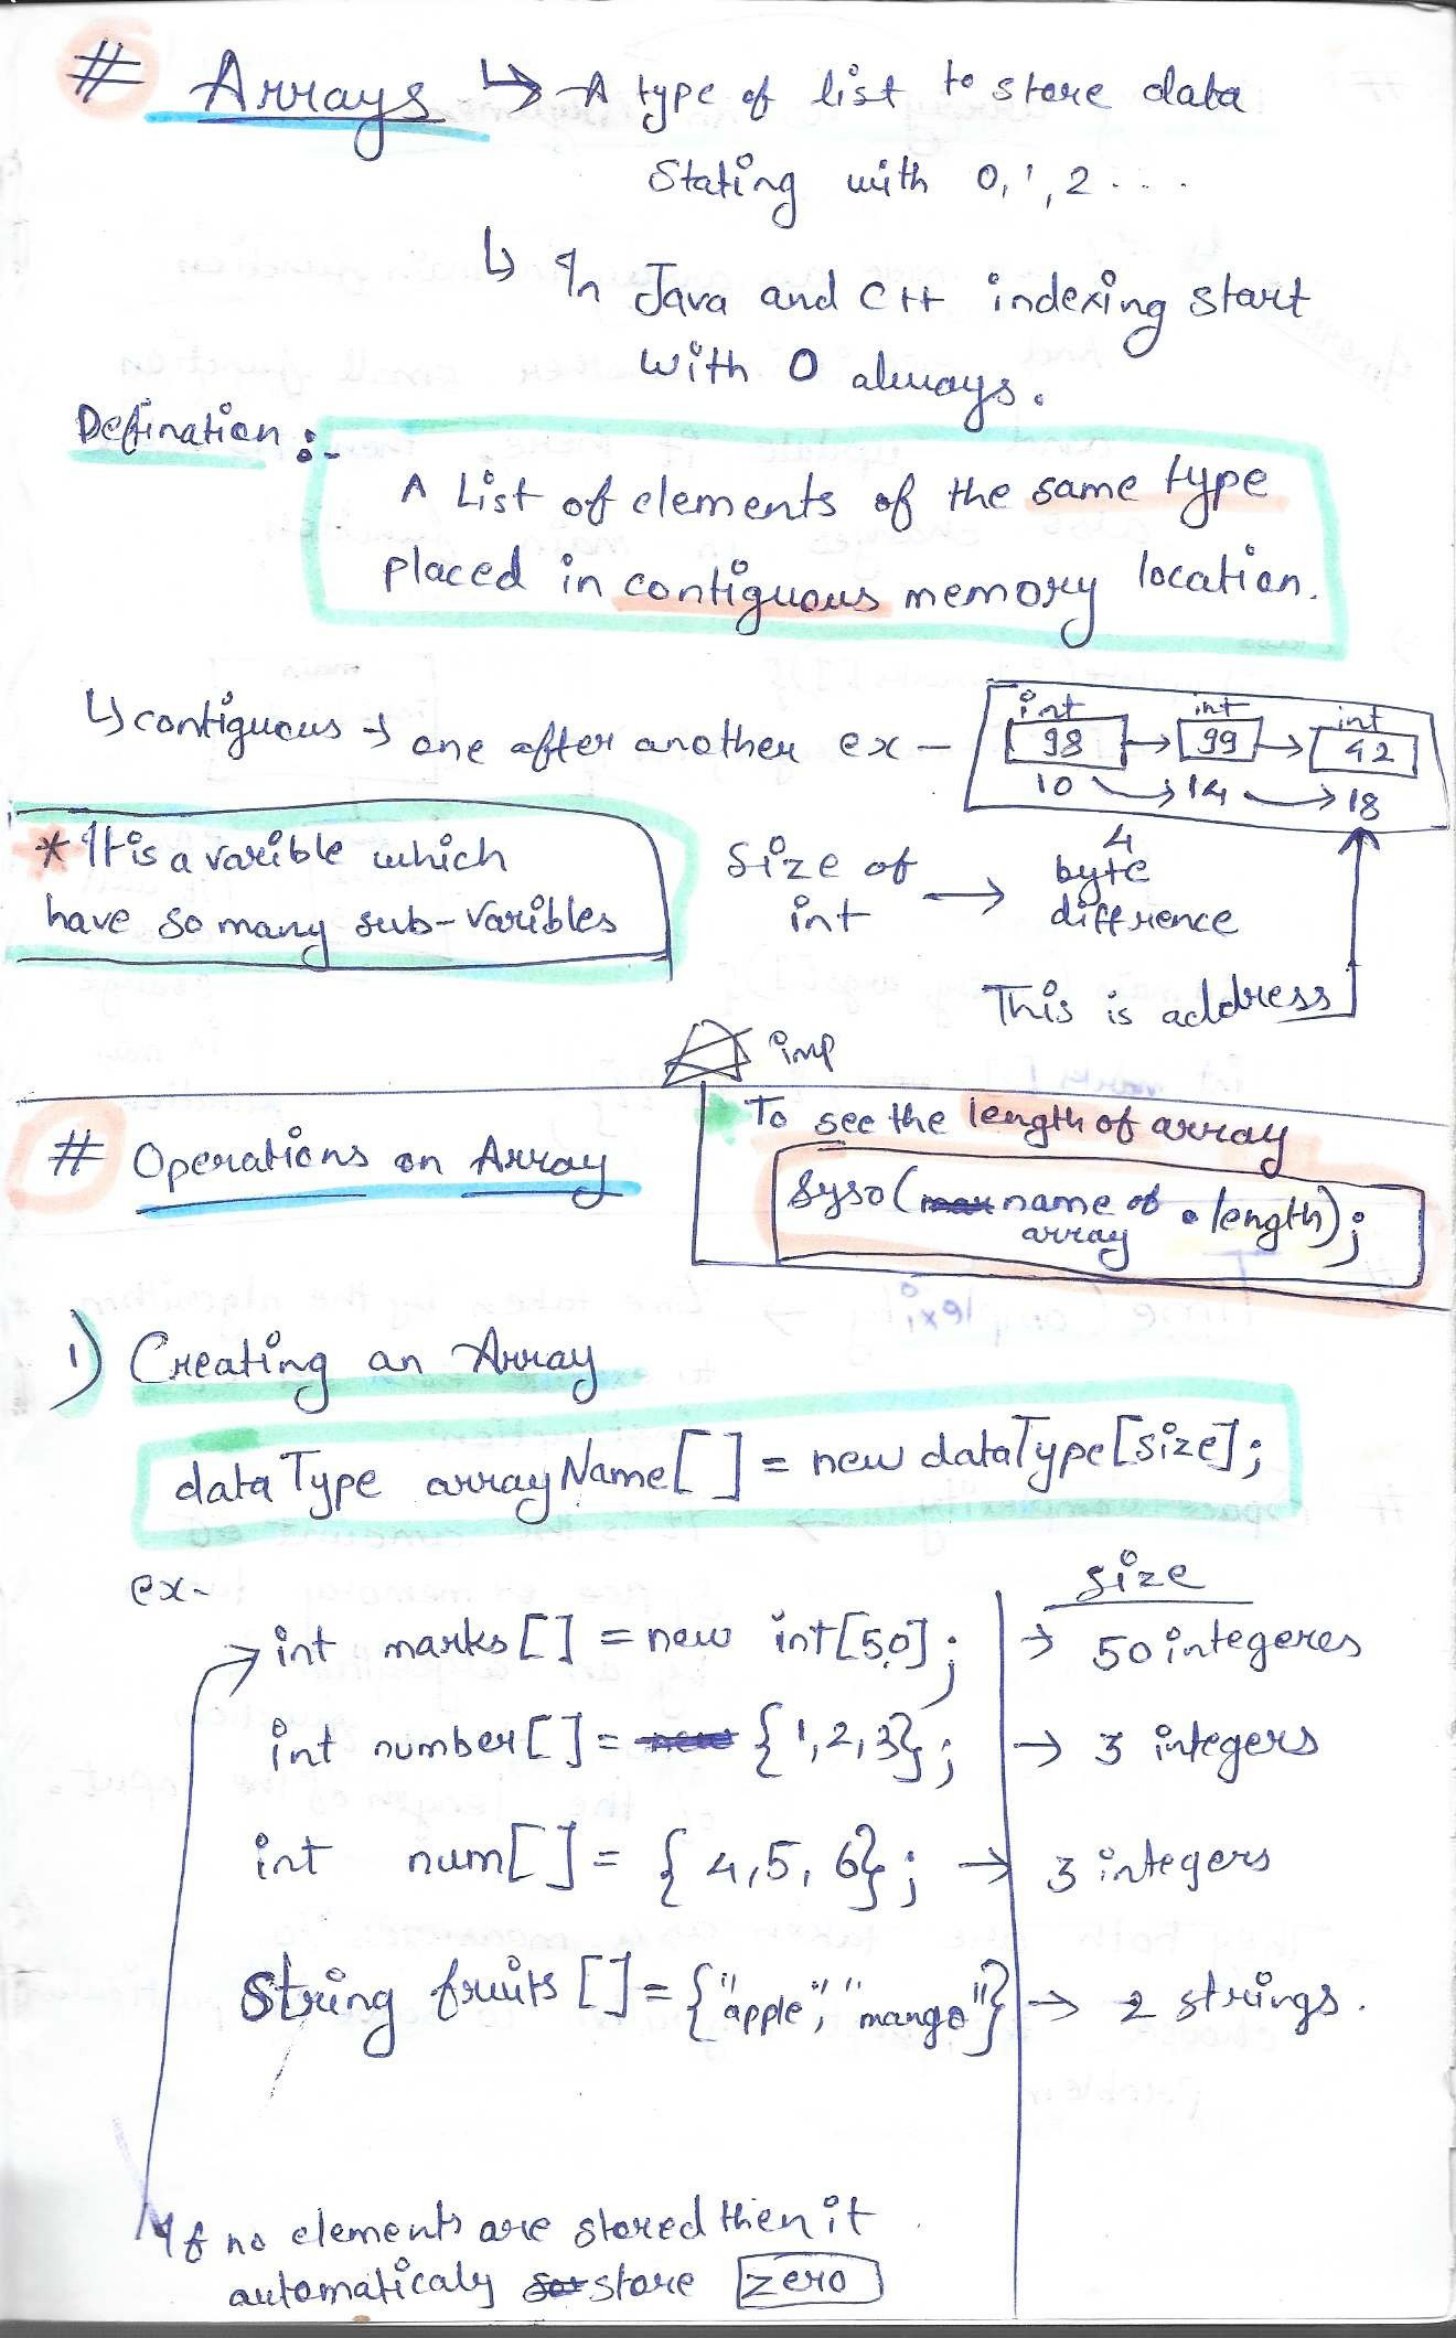 # Arrays ↳ A type of list to store data
Stating with 0, 1, 2 ...
↳ In Java and C++ indexing start
with 0 always.
Defination :-
A List of elements of the same type
placed in contiguous memory location.
↳ contiguous → one after another ex -
int int int
98 → 99 → 42
10 → 14 → 18
* It is a varible which
have so many sub-varibles
Size of
int → 4
byte
diffrence
This is address
imp
To see the length of array
Syso( name of array . length);
# Operations on Array
1) Creating an Array
dataType arrayName[ ] = new dataType[size];
ex-
size
int marks[ ] = new int[50]; → 50 integeres
int number[ ] = {1,2,3}; → 3 integers
int num[ ] = { 4,5, 6}; → 3 integers
String fruits [ ] = {"apple", "mango"} → 2 strings.
If no elements are stored then it
automaticaly store zero